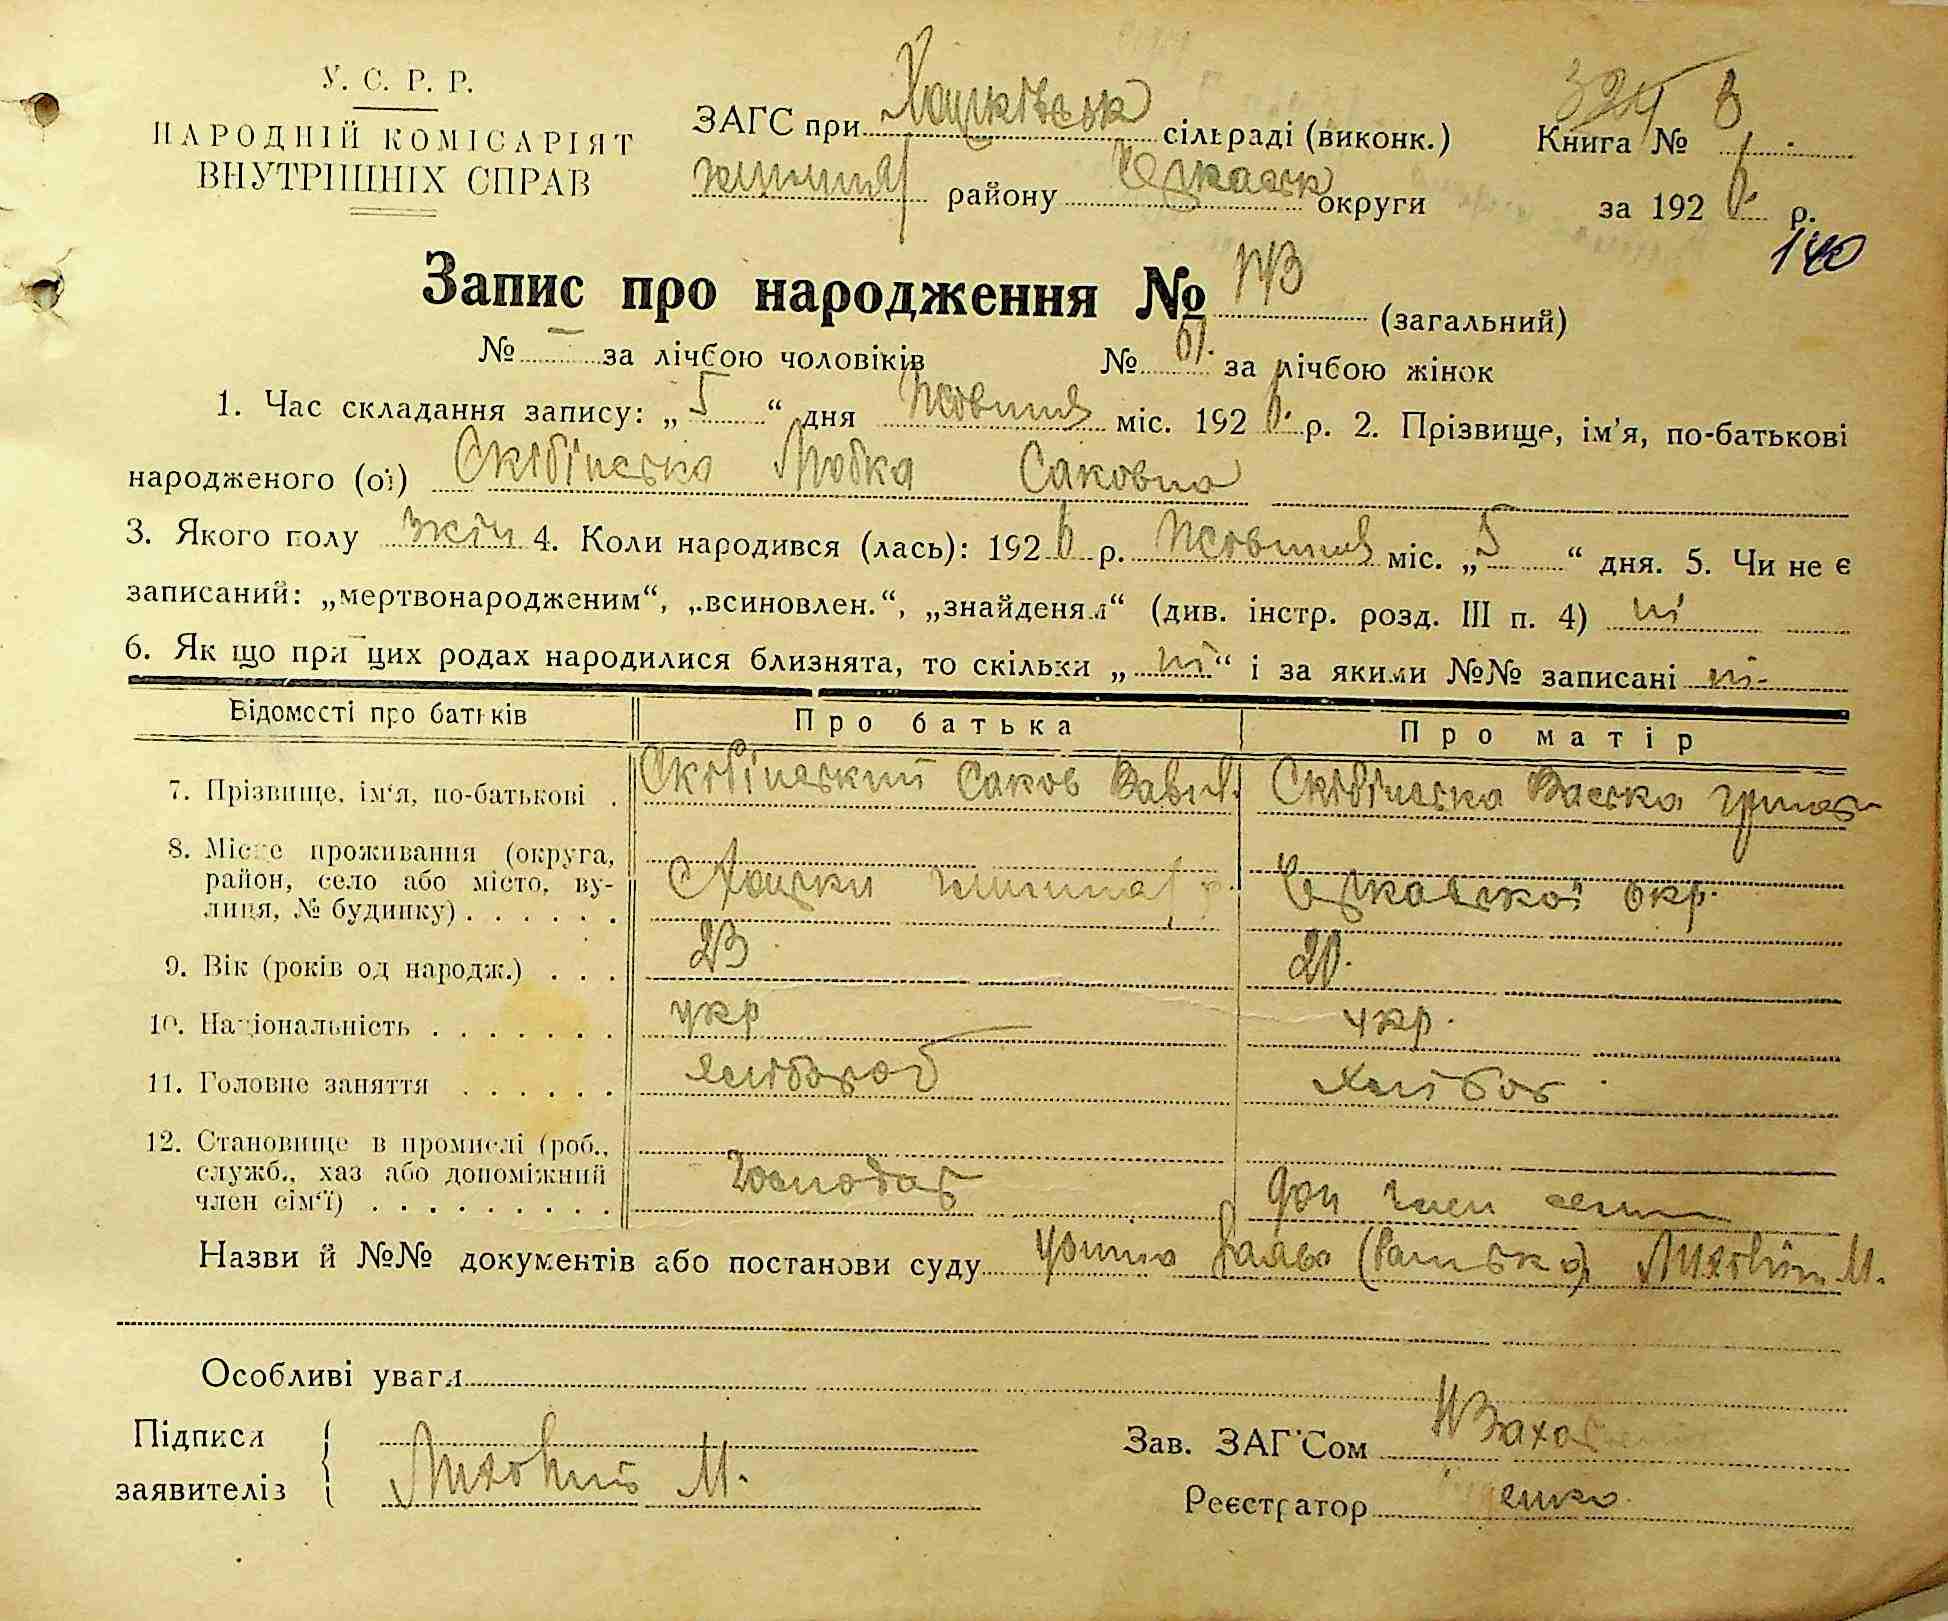 У. С. Р. Р.
НАРОДНІЙ КОМІСАРІЯТ
ВНУТРІШНІХ СПРАВ
ЗАГС при Хоцківськ сільраді (виконк.)
району Черкаськ округи
Книга №
за 1926 р.
140
Запис про народження № 173 (загальний)
№ — за лічбою чоловіків № 61. за лічбою жінок
1. Час складання запису: „5“ дня Жовтня міс. 1926 р. 2. Прізвище, ім'я, по-батькові
народженого (ої) Скібінська Любка Саковна
3. Якого полу жін 4. Коли народився (лась): 1926 р. Жовтня міс. „5“ дня. 5. Чи не є
записаний: „мертвонародженим“, „всиновлен.“, „знайденям“ (див. інстр. розд. III п. 4) ні
6. Як що при цих родах народилися близнята, то скільки „ні“ і за якими №№ записані ні
Відомості про батьків Про батька Про матір
7. Прізвище, ім'я, по-батькові . Скібінський Саков Вавил. Скібінська Васька
8. Місце проживання (округа, район, село або місто, вулиця, № будинку) . . . . . . С Хоцьки р. Черкаської окр.
9. Вік (років од народж.) . . . 23 20.
10. Національність . . . . . . . укр укр.
11. Головне заняття . . . . . . хлібороб хлібор
12. Становище в промислі (роб., служб., хаз або допоміжний член сім'ї) . . . . . . . . . Господар доп член семи
Назви й №№ документів або постанови суду М.
Особливі уваги
Підписи
заявителів М.
Зав. ЗАГС'ом
Реєстратор